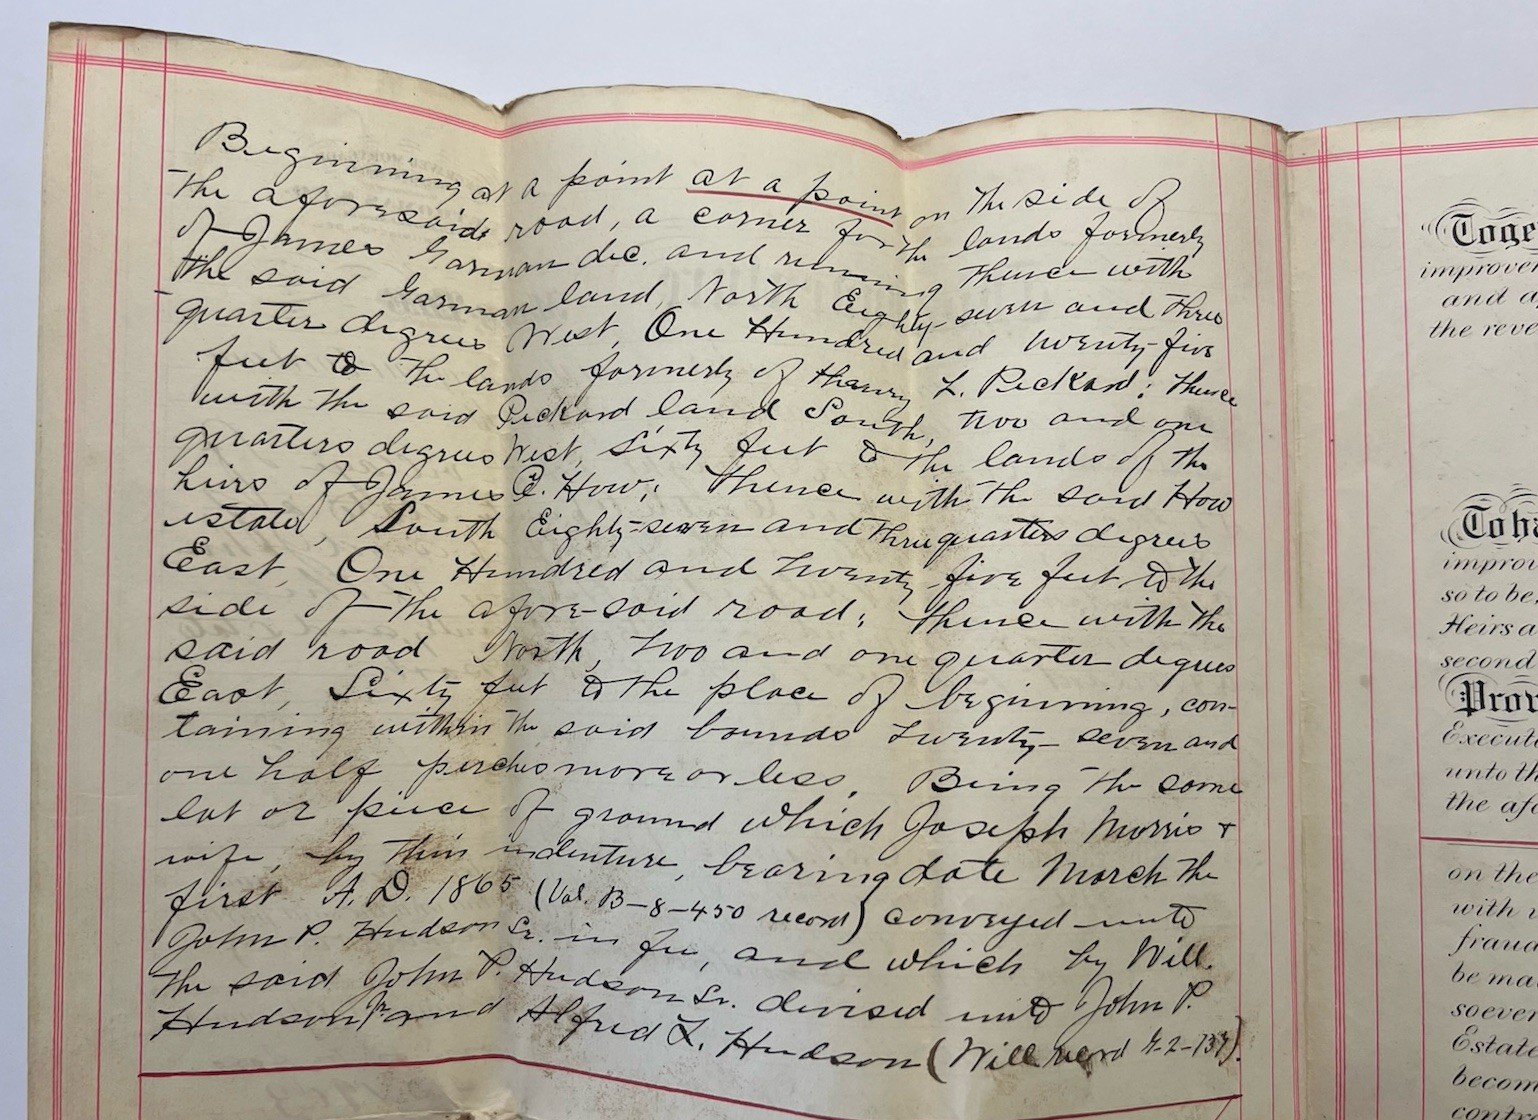 Beginning at a point at a point on the side of
the aforesaid road, a corner for the lands formerly
of James Garman dec. and running thence with
the said Garman land, North Eighty-seven and three
quarter degrees West, One Hundred and twenty-five
feet to the lands formerly of Henry L. Peckard; thence
with the said Peckard land South, two and one
quarters degrees West, sixty feet to the lands of the
heirs of James C. How; thence with the said How
estate, South Eighty-seven and three quarters degrees
East, One Hundred and twenty five feet to the
side of the afore-said road; thence with the
said road North, two and one quarter degrees
East, Sixty feet to the place of beginning, con-
taining within the said bounds twenty-seven and
one half perches more or less. Being the same
lot or piece of ground which Joseph Morris +
wife, by their indenture, bearing date March the
first A.D. 1865 (Vol. B-8-450 record) conveyed unto
John P. Hudson Sr. in fee, and which by Will.
the said John P. Hudson Sr. devised unto John P.
Hudson Jr. and Alfred L. Hudson (Will record G-2-137).
Toge
improve
and a
the reve
To ha
improv
so to be,
Heirs a
second
Prov
Execut
unto th
the afo
on the
with
fraud
be ma
soever
Estate
becom
contr